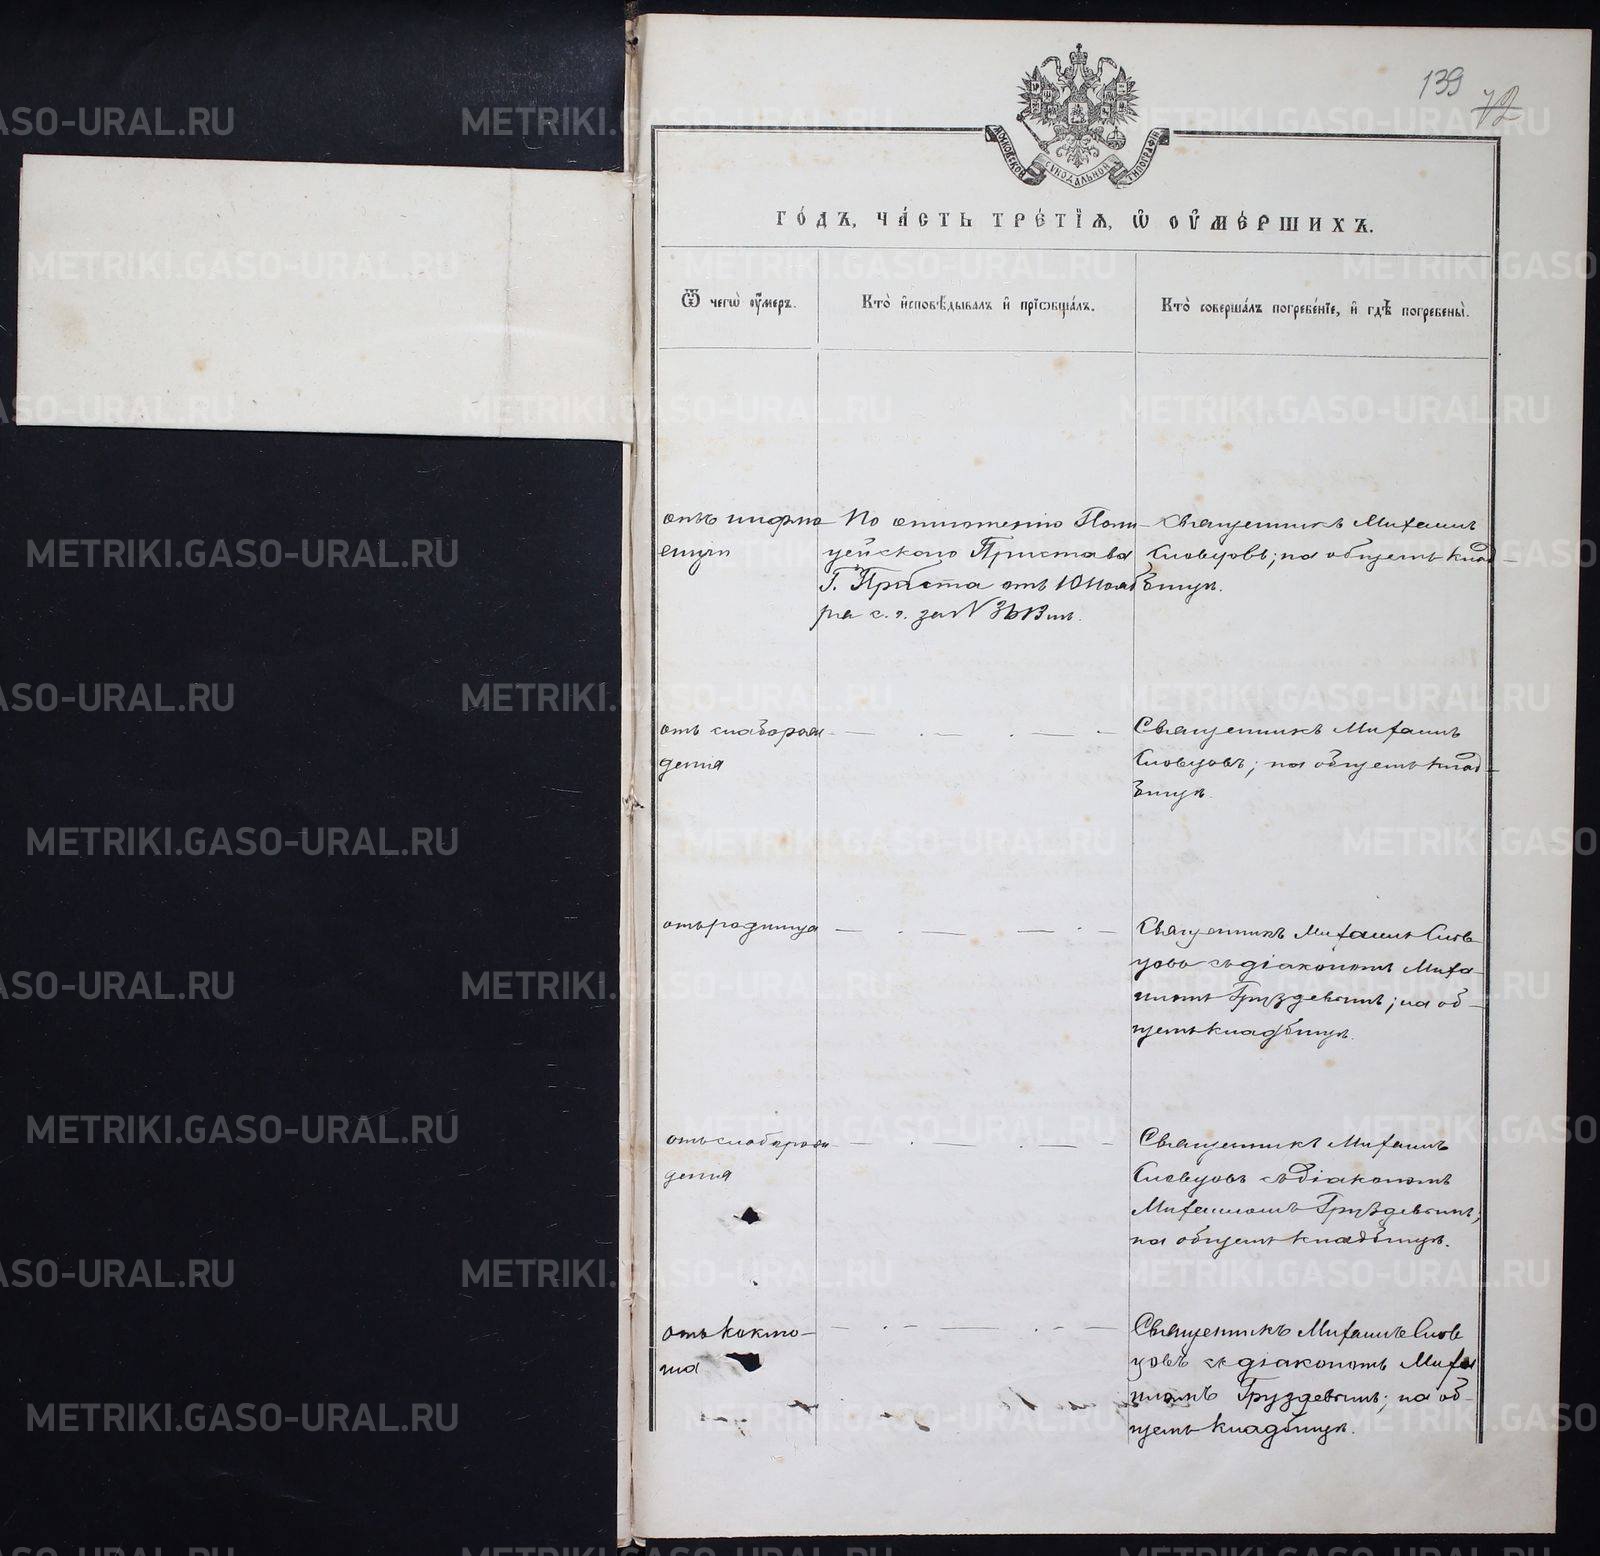 139
72
МОСКОВСКОЙ СѴНОДАЛЬНОЙ ТИПОГРАФІИ
ГО́ДЪ, ЧА́СТЬ ТРЕ́ТІЯ, Ѡ ОУ҆МЕ́РШИХЪ.
Ѿ чегѡ̀ оу҆́меръ.
Кто̀ и҆сповѣ́дывалъ и҆ прїѡбща́лъ.
Кто̀ соверша́лъ погребе́нїе, и҆ гдѣ̀ погребены̀.
отъ
По отношенію Поли-
цейскаго Пристава
отъ 10 Нояб
ря с. г. за №
Священникъ Михаилъ
Словцовъ; на общемъ клад-
бищѣ.
отъ слаборож
денія
Священникъ Михаилъ
Словцовъ; на общемъ клад-
бищѣ.
отъ родимца
Священникъ Михаилъ Слов
цовъ съ діакономъ Миха-
иломъ Груздевымъ; на об-
щемъ кладбищѣ.
отъ слаборож
денія
Священникъ Михаилъ
Словцовъ съ діакономъ
Михаиломъ Груздевымъ;
на общемъ кладбищѣ.
отъ коклю-
ша
Священникъ Михаилъ Слов
цовъ съ діакономъ Миха
иломъ Груздевымъ; на об-
щемъ кладбищѣ.
METRIKI.GASO-URAL.RU